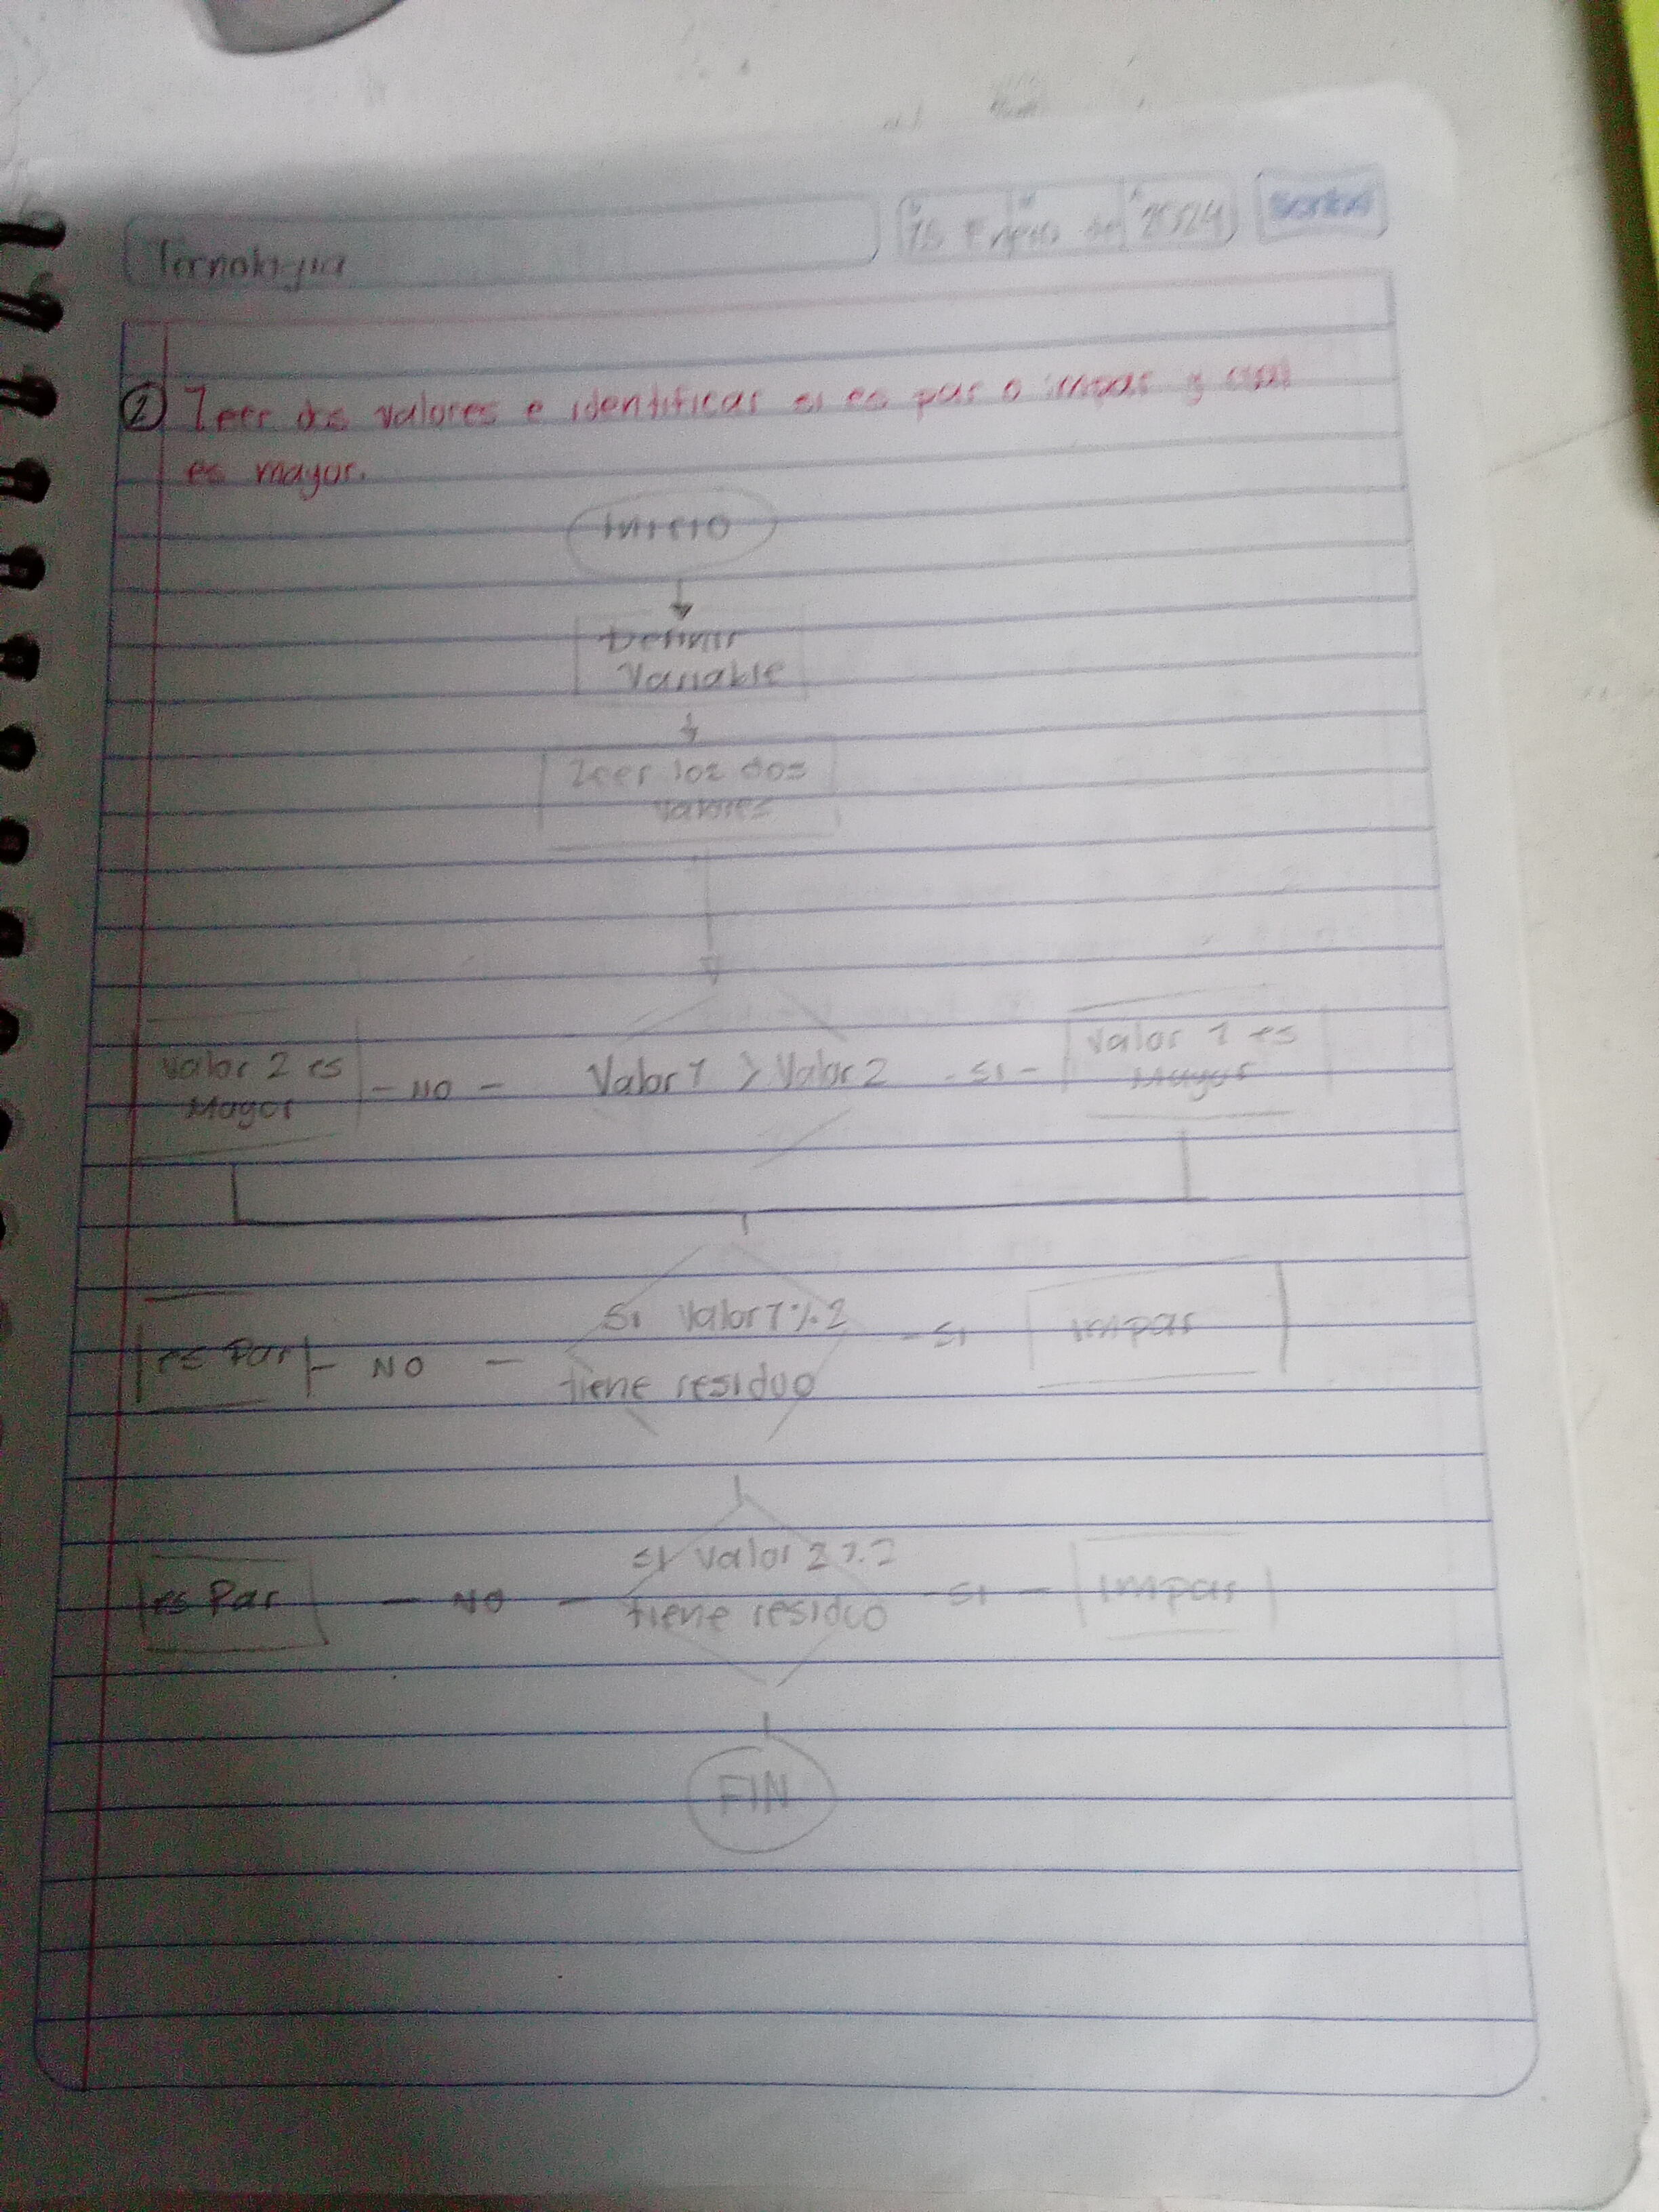 Tecnología
15 Enero del 2024
② Leer dos valores e identificar si es par o impar y cual
es mayor.
INICIO
Definir
Variable
Leer los dos
valores
Valor 2 es
Mayor
- NO -
Valor 1 > Valor 2
- SI -
Valor 1 es
Mayor
es Par
- NO -
Si Valor 1 % 2
tiene residuo
- SI
impar
es Par
- NO -
si Valor 2 % 2
tiene residuo
- SI -
impar
FIN